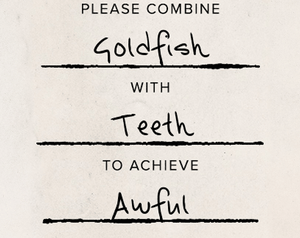 PLEASE COMBINE
Goldfish
WITH
Teeth
TO ACHIEVE
Awful